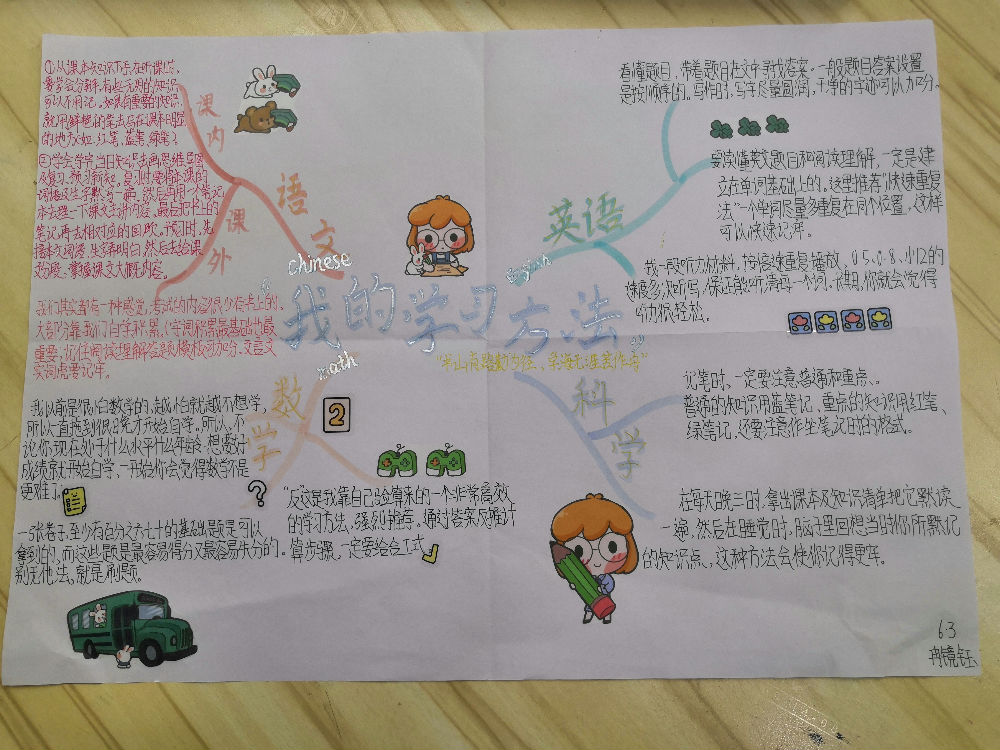 ①从课本知识下手，在听课上，
要学会分辨，有些无用的知识
可以不用记。如果有重要的知识
就用鲜艳的笔去写在课本明显
的地方（如：红笔、蓝笔、绿笔）
②学会学完当日知识去画思维导图
及复习、预习新知。复习时要将本课的
词语
然后再用一个笔记
本去理一下课文主讲内容，最后把书上的
笔记再去相对应的回顾。预习时，先
将本文阅览，生字弄明白，然后去给课文
分段、掌握课文大概内容。
我们其实都有一种感觉，考试的内容很少有书上的，
大部分靠我们自学积累，字词积累最基础也最
重要，记住阅读理解答题模板可加分，文言文
实词虚要记牢。
课内
课外
语文
chinese
英语
English
看懂题目，带着题目在文中寻找答案。一般题目答案设置
是按顺序的。写作时，写字尽量圆润，干净的字迹可以加分。
要读懂英文题目和阅读理解，一定是建
立在单词基础上的。这里推荐“快速重复
法”一个单词尽量多重复在同个位置，这样
可以快速记牢。
找一段听力材料，按倍速重复播放，0.5、0.8、1.2的
速度多次听写，保证能听清每一个词，长期，你就会觉得
听力很轻松。
“我的学习方法”
“书山有路勤为径，学海无涯苦作舟”
math
数学
2
我以前是很小白数学的，越小白就越不想学，
所以一直拖到很晚才开始自学。所以，不
论你现在处于什么水平什么年龄，想数学
成绩高就开始自学，一开始你会觉得数学不是
更难了。
一张卷子，至少有百分之六七十的基础题是可以
拿到的，而这些题是最容易得分又最容易失分的。
别无他法，就是刷题。
“反”这是我靠自己验算来的一个非常高效
的学习方法，强烈推荐。通过答案反推计
算步骤，一定要结合工式
科学
记笔时，一定要注意普通和重点、
普通的知识用蓝笔记，重点的知识用红笔、
绿笔记，还要注意作生笔记时的格式。
在每天晚上时，拿出课本及知识清单把它默读
一遍，然后在睡觉时，脑子里回想当时你所默记
的知识点，这种方法会使你记得更牢。
6.3
冉镜钰